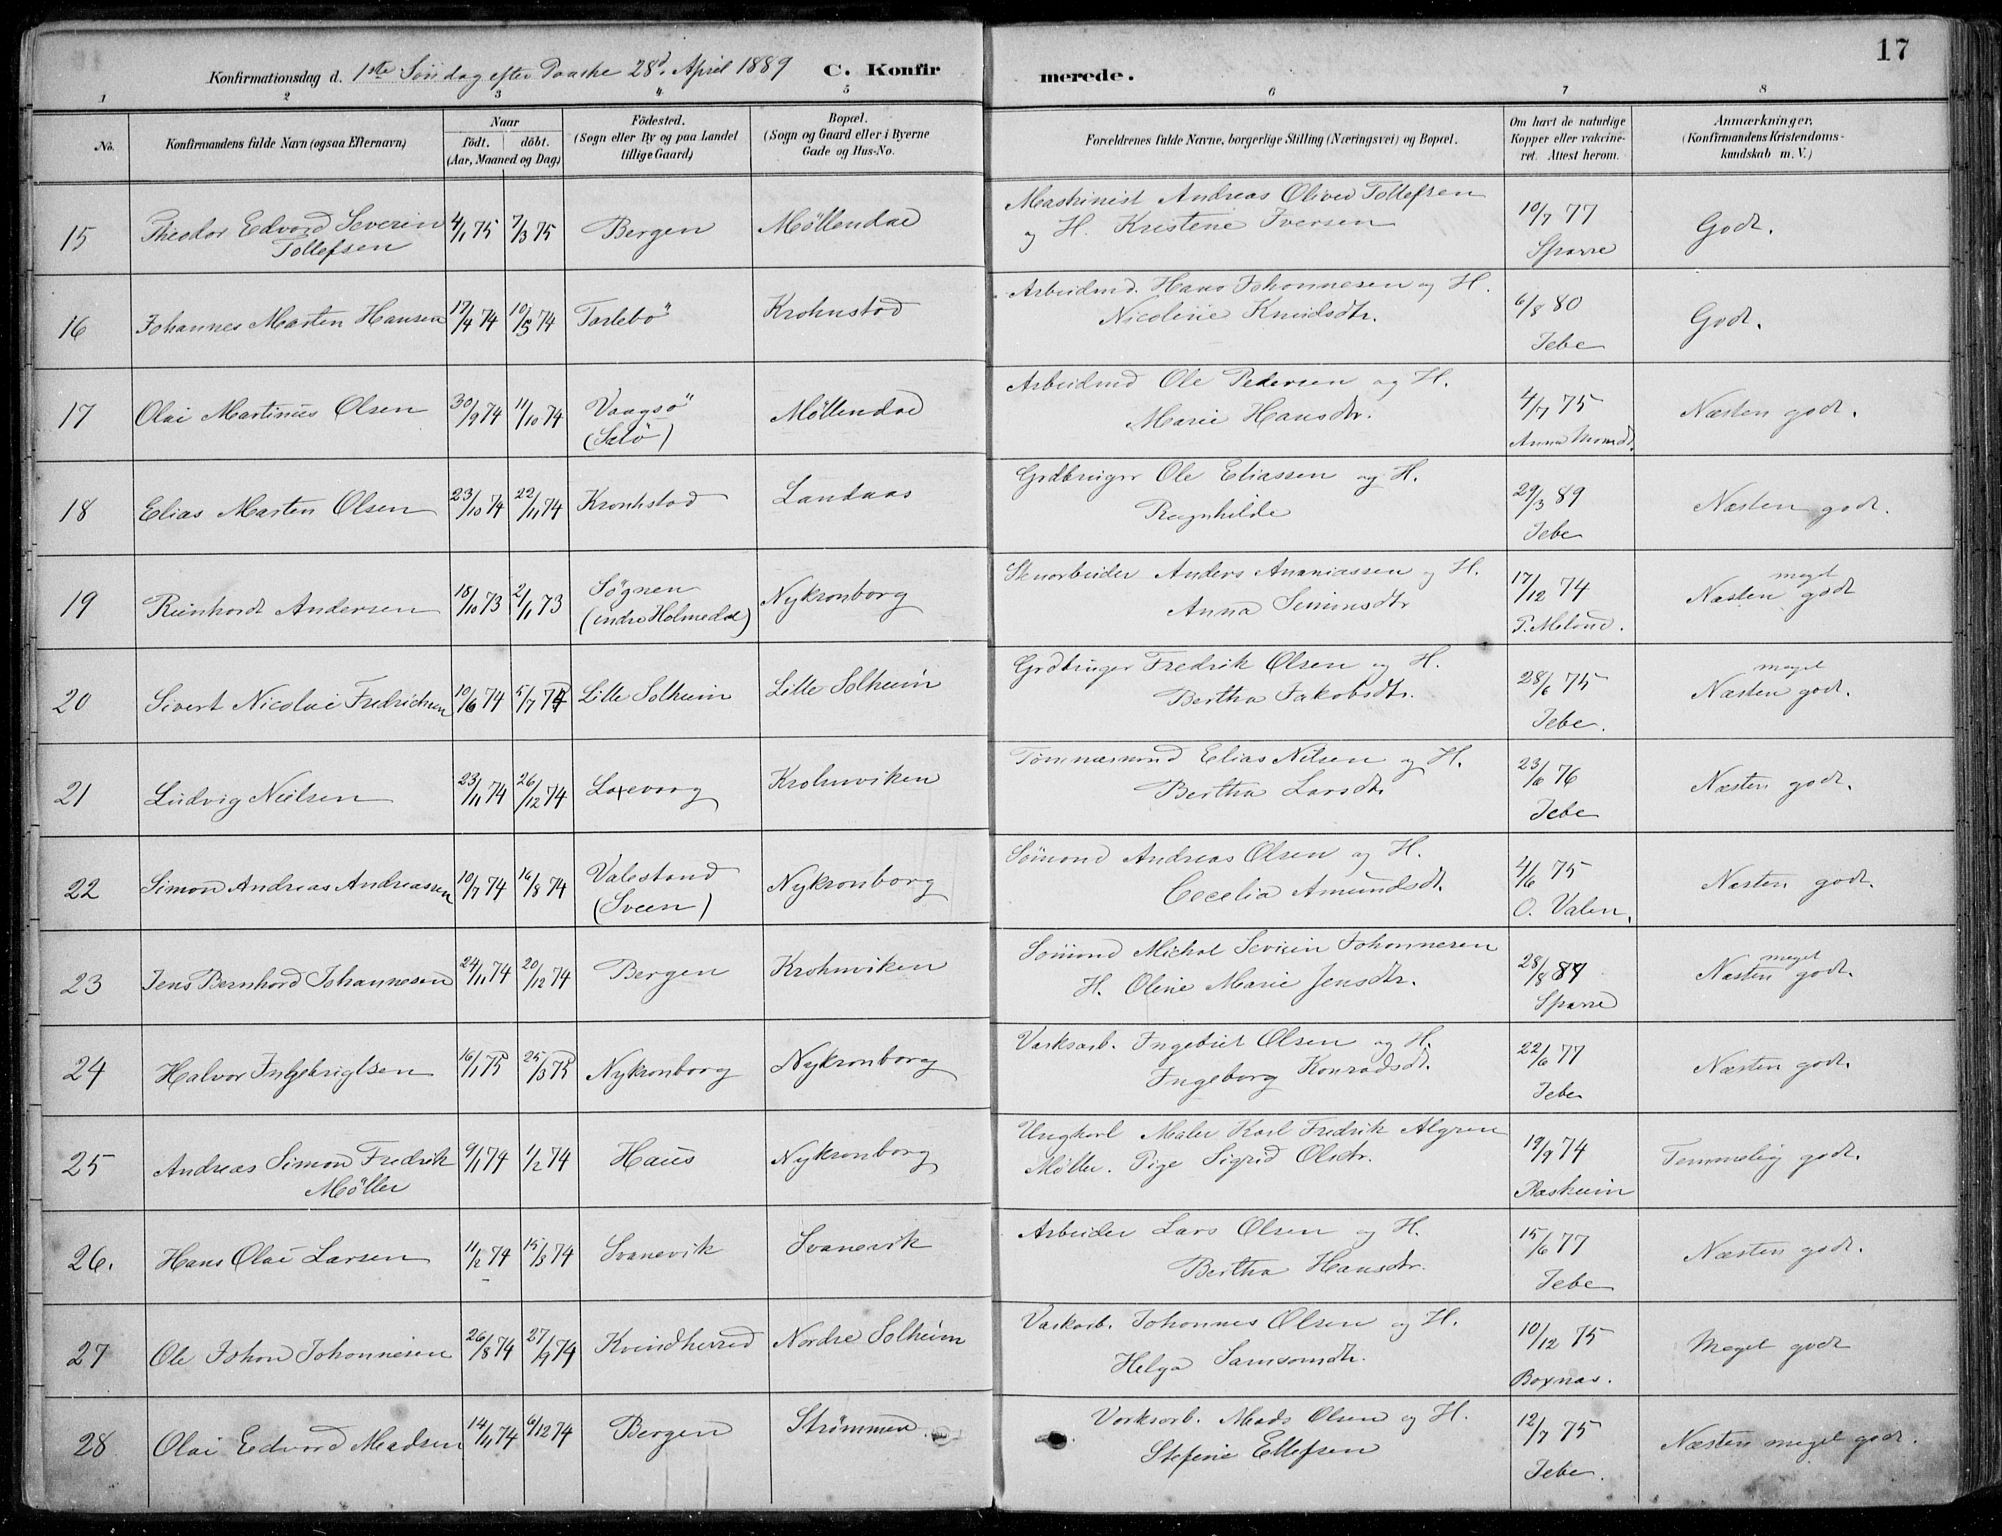 17
Konfirmationsdag d. 1ste Söndag efter Paaske 28d. April 1889 C. Konfir merede.
1 2 3 4 5 6 7 8
No. Konfirmandens fulde Navn (ogsaa Efternavn) Naar Födested. Bopæl. Forældrenes fulde Navne, borgerlige Stilling (Næringsvei) og Bopæl. Om havt de naturlige Anmærkninger,
födt. döbt. (Sogn eller By og paa Landet (Sogn og Gaard eller i Byerne Kopper eller vakcine- (Konfirmandens Kristendoms-
(Aar, Maaned og Dag) tillige Gaard) Gade og Hus-No. ret. Attest herom. kundskab m. V.)
15 Theodor Edvard Severin 4/1 75 7/3 75 Bergen Möllendal Maskinist Andreas Oliver Tollefsen 10/7 77 Godt.
Tollefsen og H. Kristene Iversen Sparre
16 Johannes Marten Hansen 17/4 74 10/5 74 Tarlebö Krohnstad Arbeidmd. Hans Johannesen og H. 6/8 80 Godt.
Nicoline Knudsdtr. Jebe
17 Olai Martinus Olsen 30/9 74 11/10 74 Vaagsö Möllendal Arbeidmd Ole Pedersen og H. 4/7 75 Næsten godt.
(Selö) Marie Hansdtr. Anna
18 Elias Marten Olsen 23/10 74 22/11 74 Kronhstad Landaas Grdbruger Ole Eliassen og H. 29/3 89 Næsten godt.
Ragnhilde Jebe
19 Reinhardt Andersen 18/10 73 2/11 73 Sögnen Nykronborg Stenarbeider Anders Ananiassen og H. 17/12 74 Næsten meget godt
(indre Holmedal) Anna Simensdtr P. Meland.
20 Sivert Nicolai Fredrichsen 10/6 74 5/7 74 Lille Solheim Lille Solheim Grdbruger Fredrik Olsen og H. 28/6 75 Næsten meget godt.
Bertha Jakobsdtr. Jebe.
21 Ludvig Nielsen 23/11 74 26/12 74 Laxevaag Krohnviken Tömmermand Elias Nilsen og H. 23/6 76 Næsten godt.
Bertha Larsdtr. Jebe
22 Simon Andreas Andreassen 10/7 74 16/8 74 Valestand Nykronborg Sömand Andreas Olsen og H. 4/6 75 Næsten godt.
(Sveen) Cecelia Amundsdt. O. Valen.
23 Jens Bernhard Johannesen 24/11 74 20/12 74 Bergen Krohnviken Sömand Michal Severin Johannesen 28/8 87 Næsten meget godt.
H. Oline Marie Jensdtr. Sparre
24 Halvor Ingebrigtsen 16/1 75 25/3 75 Nykronborg Nykronborg Værksarb. Ingebret Olsen og H. 22/6 77 Næsten godt.
Ingeborg Konradsdt. Jebe
25 Andreas Simon Fredrik 9/1 74 1/2 74 Haus Nykronborg Ungkarl Maler Karl Fredrik Algren 19/9 74 Temmelig godt.
Möller Möller. Pige Sigrid Olsdtr. Raskeim
26. Hans Olai Larsen 11/2 74 15/3 74 Svanevik Svanevik Arbeider Lars Olsen og H. 15/6 77 Næsten godt.
Bertha Hansdtr. Jebe
27 Ole Johan Johannesen 26/8 74 27/9 74 Kvindherred Nordre Solheim Værkarb. Johannes Olsen og H. 10/12 75 Meget godt
Helga Samsondtr. Boxnæs.
28 Olai Edvard Madsen 14/11 74 6/12 74 Bergen Strömmen Værksarb. Mads Olsen og H. 12/7 75 Næsten meget godt.
Stefine Ellefsen Jebe.